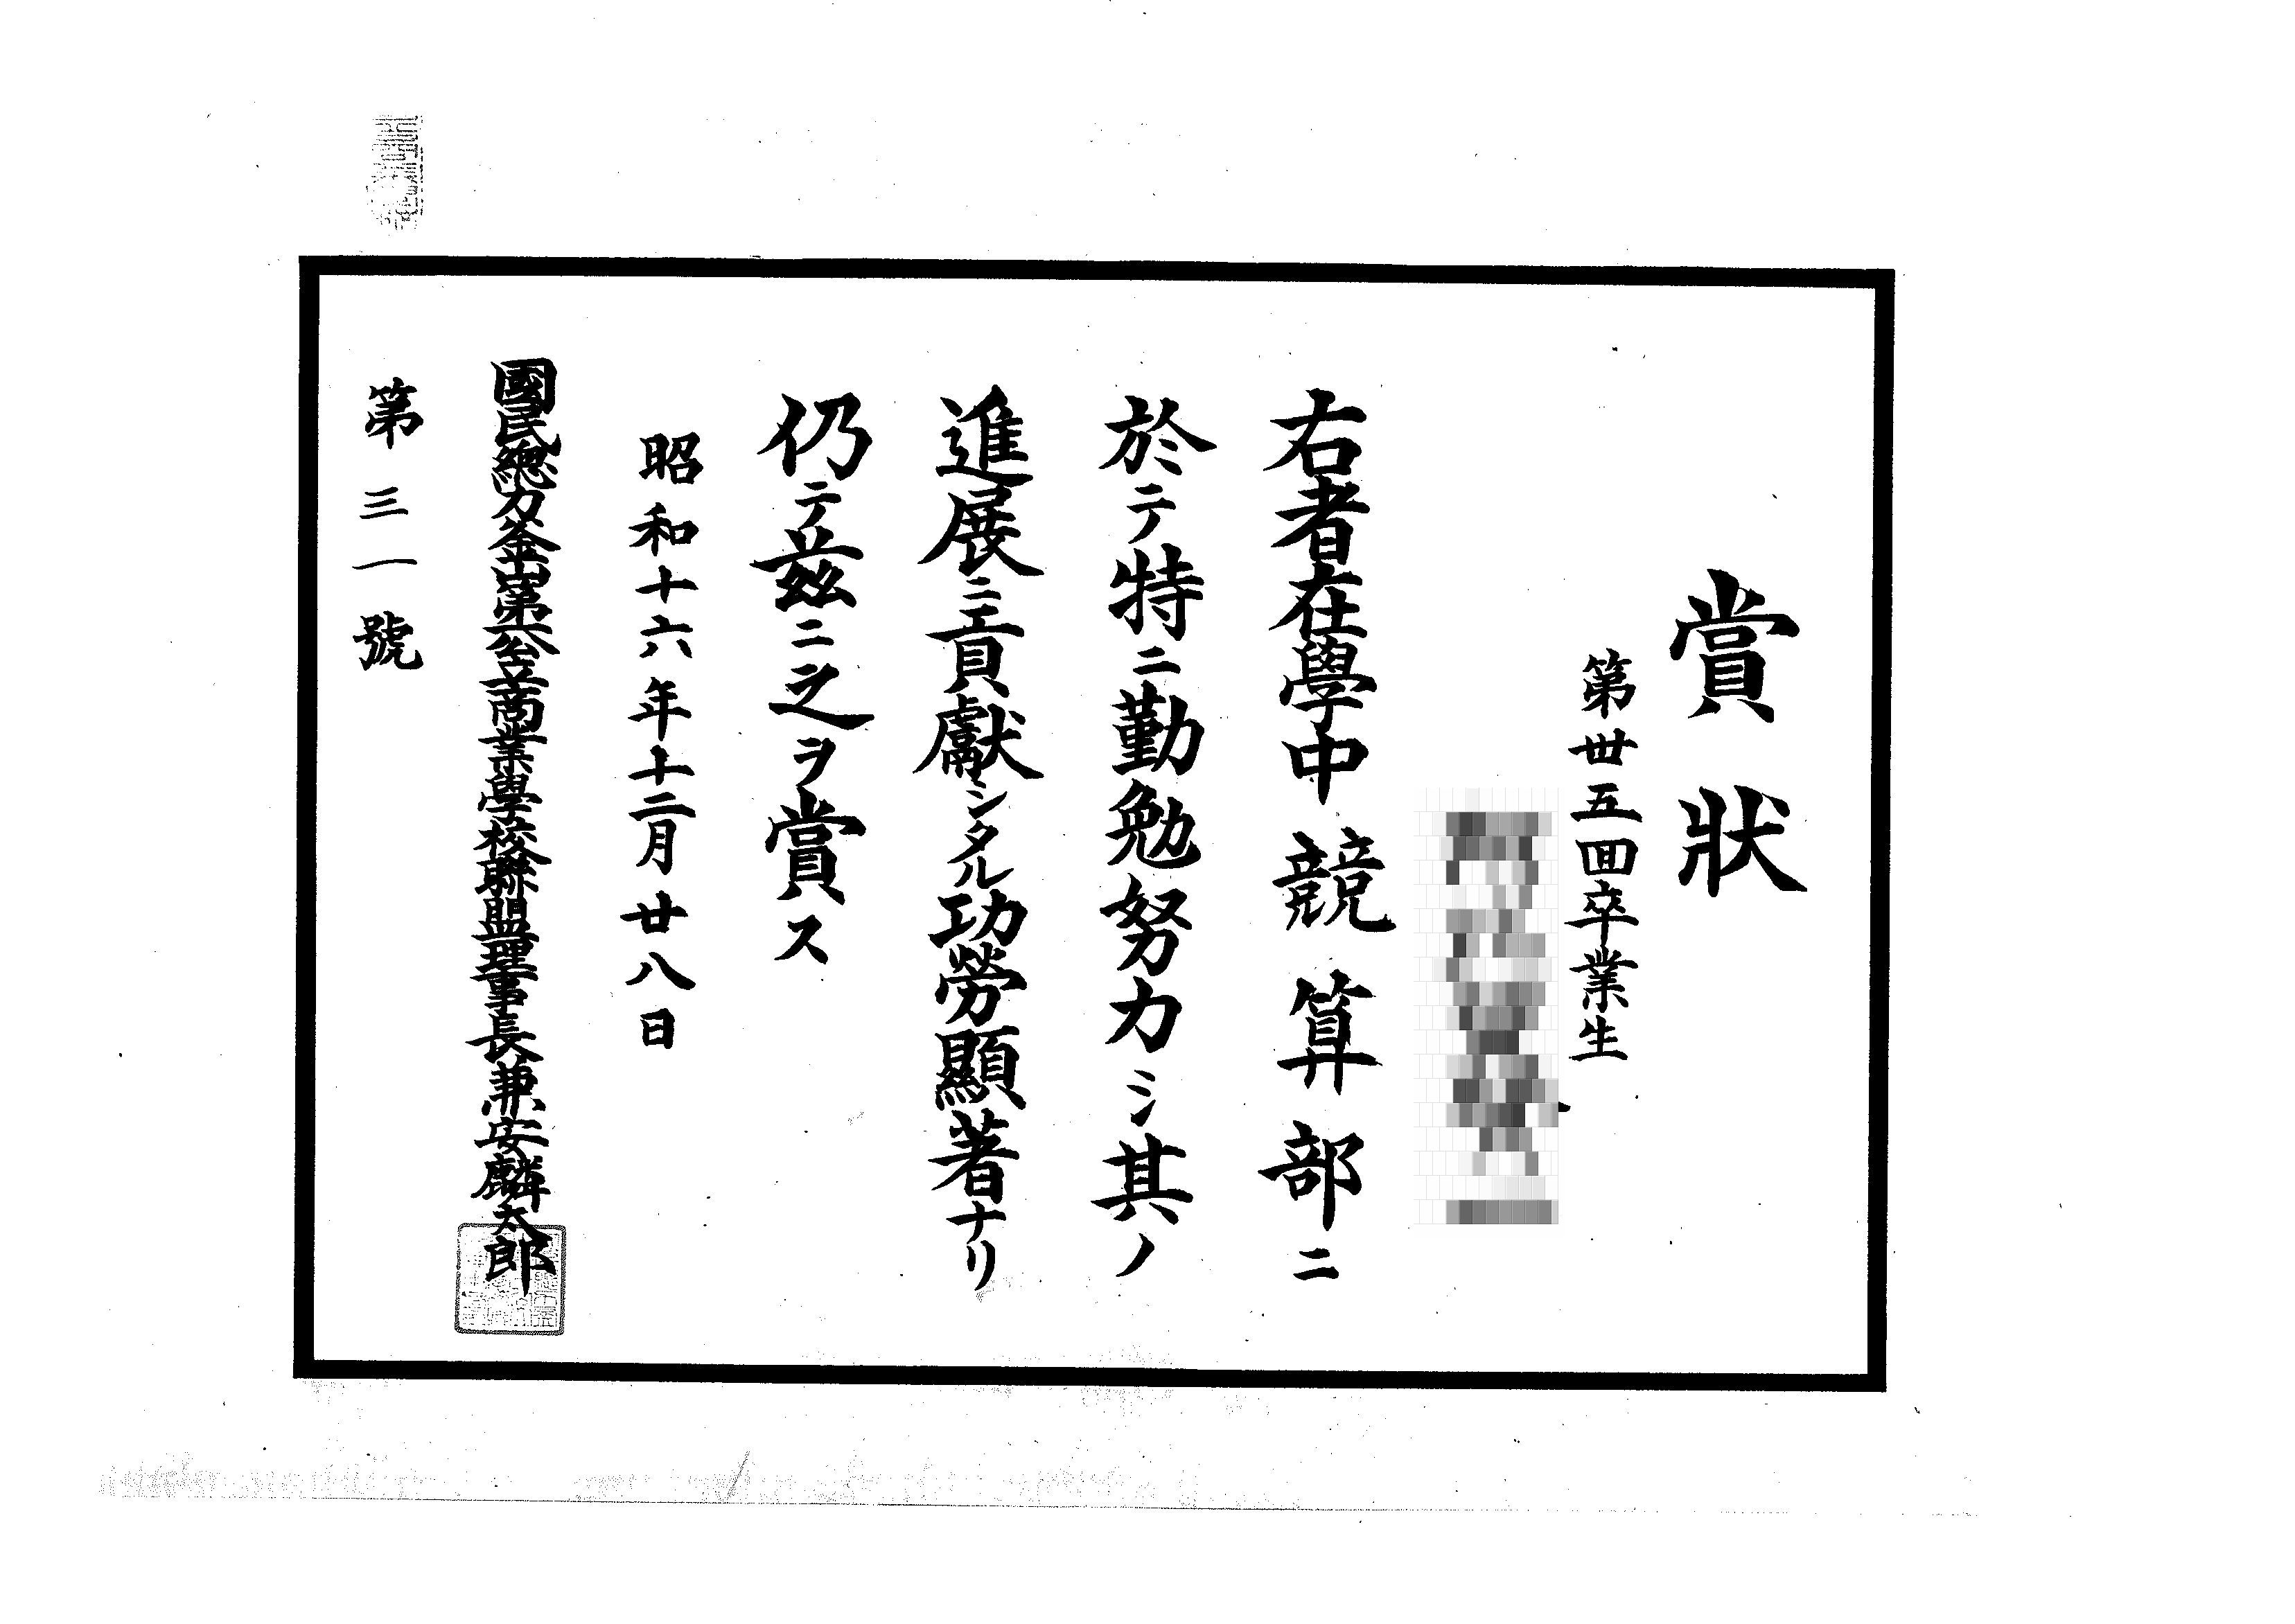 賞狀
第丗五回卒業生
右者在學中競算部ニ
於テ特ニ勤勉努力シ其ノ
進展ニ貢獻シタル功勞顯著ナリ
仍テ茲ニ之ヲ賞ス
昭和十六年十二月廿八日
國民總力釜山第一公立商業學校聯盟理事長兼安麟太郎
第三一號